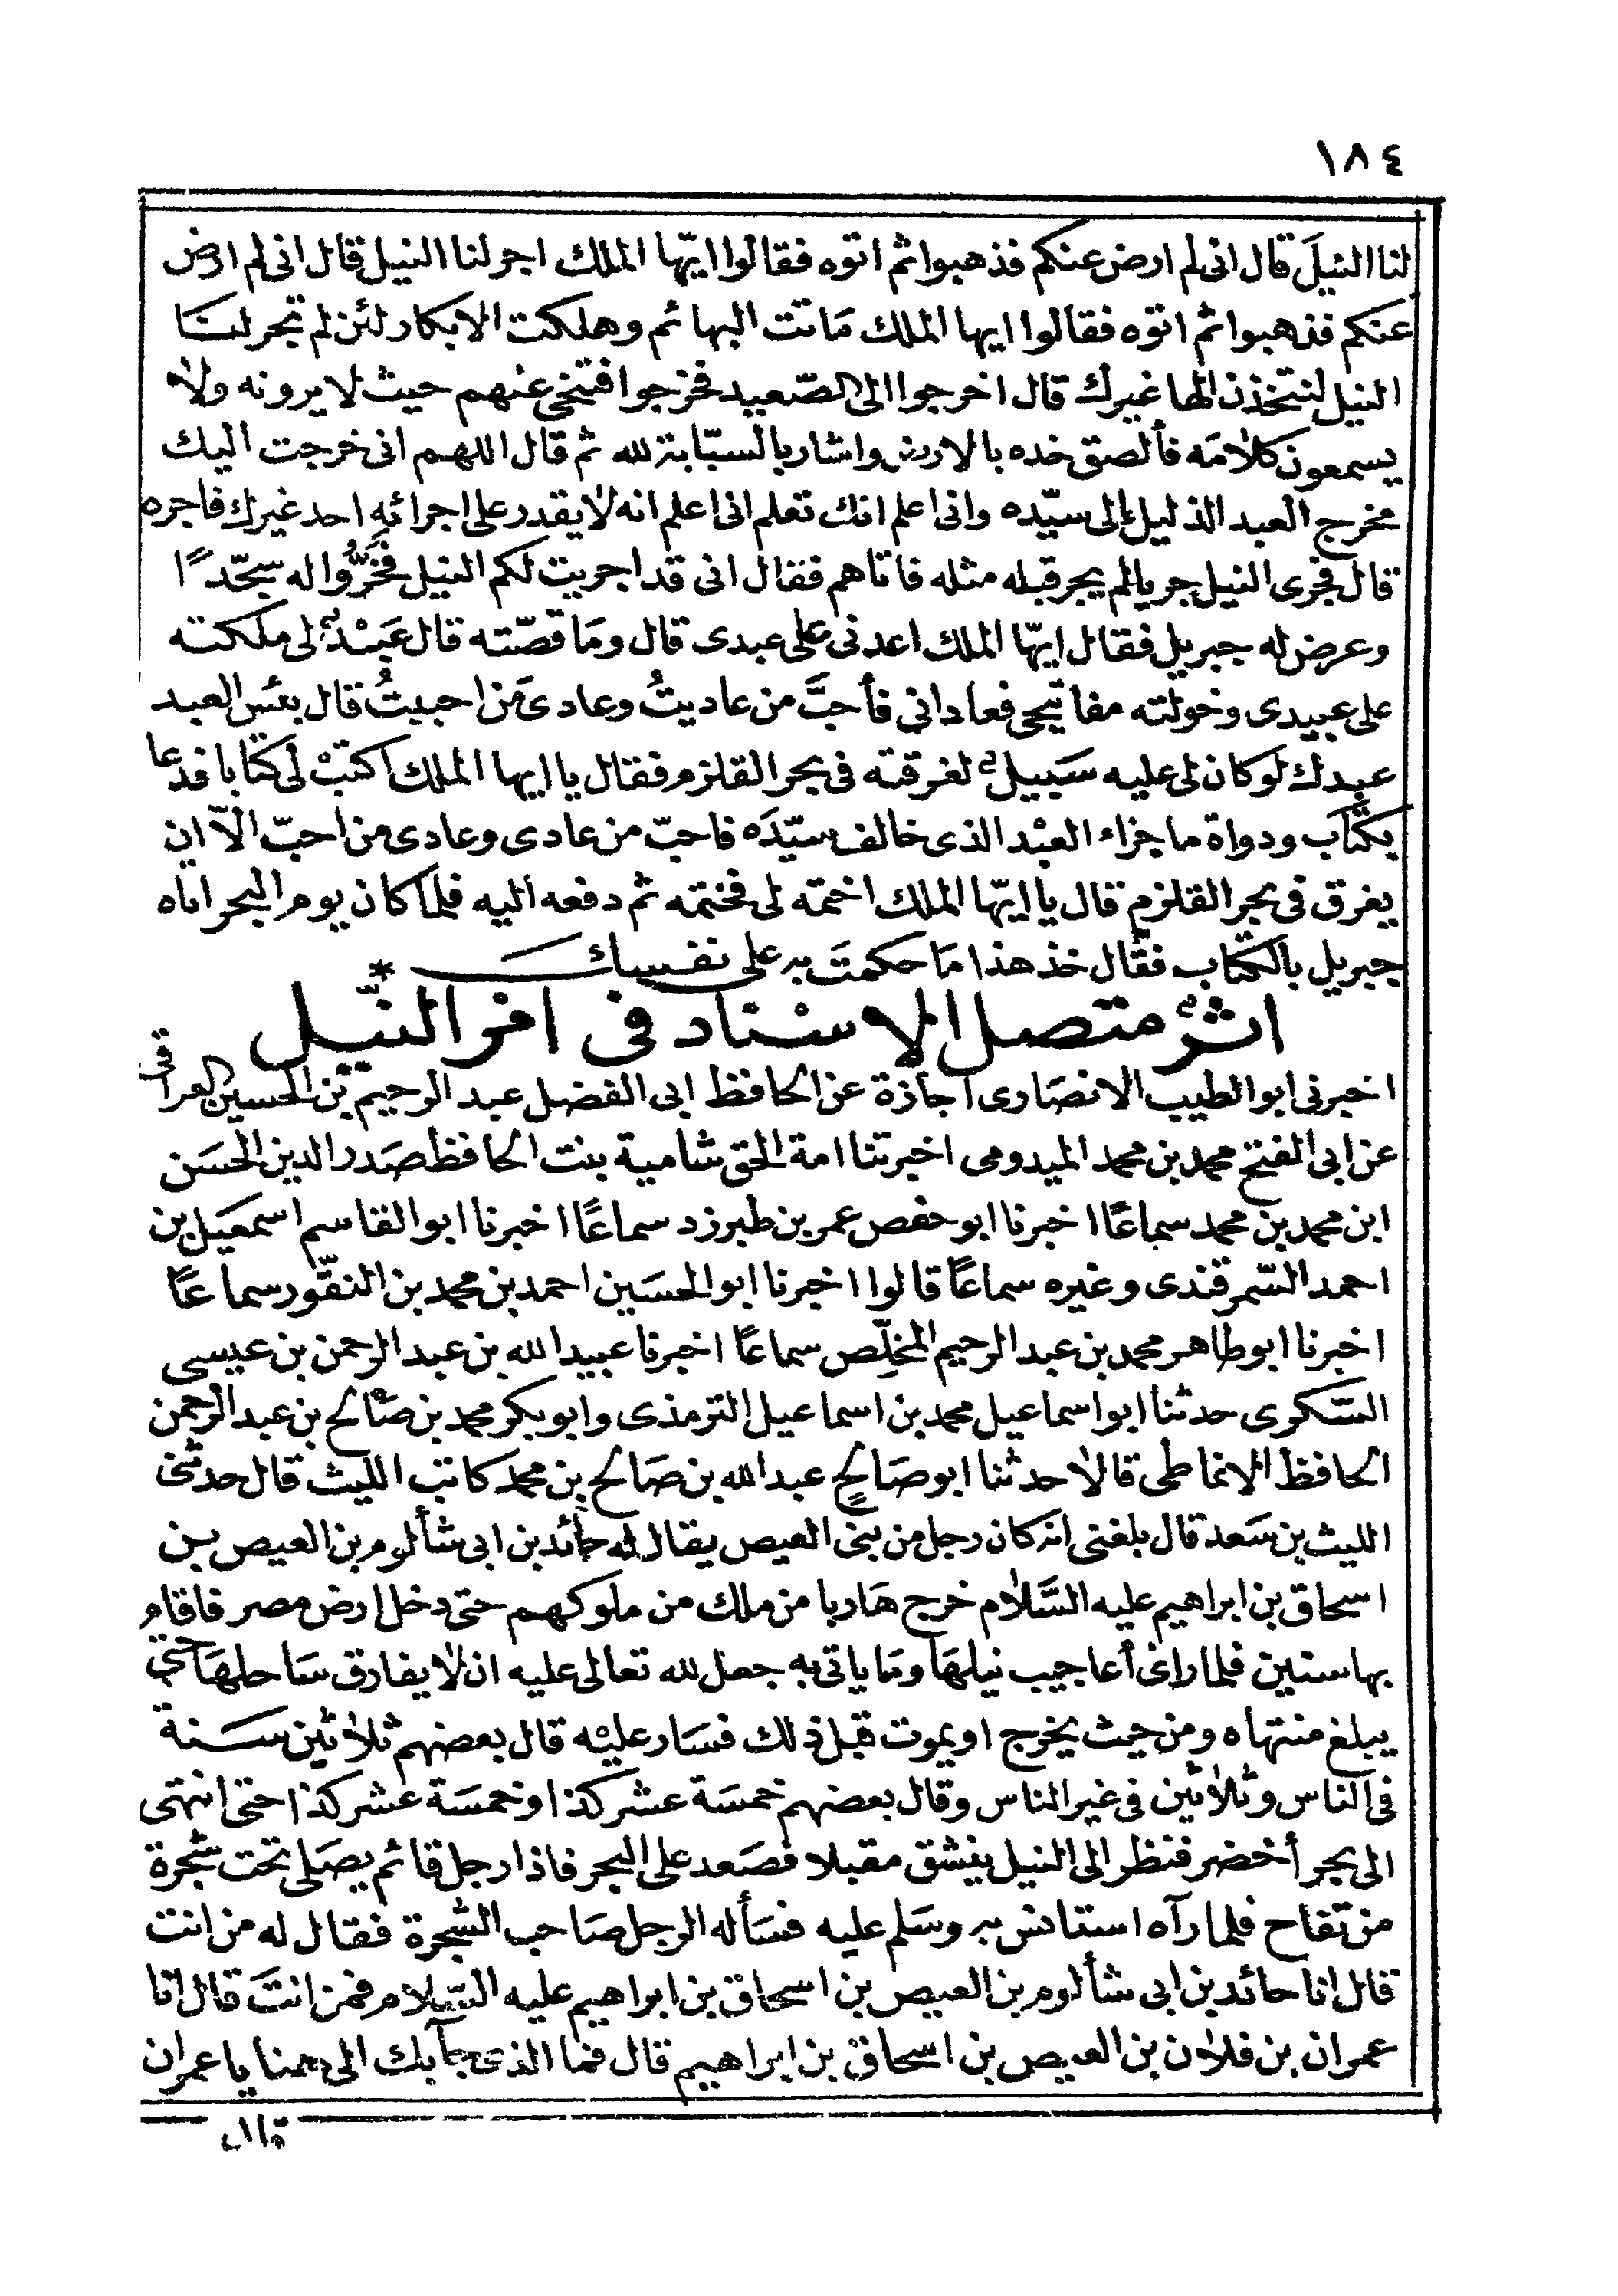 ١٨٤
لنا النيلَ قال انى لم ارض عنكم فذهبوا ثم اتوه فقالوا ايّها الملك اجر لنا النيل قال انى لم ارض
عنكم فذهبوا ثم اتوه فقالوا ايها الملك مَاتت البهائم وهلكت الابكار لئن لم تجر لنا
النيل لنتخذن الها غيرك قال اخرجوا الى الصّعيد فخرجوا فتنحى عنهم حيث لا يرونه ولا
يسمعون كلامَه فألصق خده بالارض واشار بالسبّابة لله ثم قال اللهم انى خرجت اليك
مخرج العبد الذليل الى سيّده وانى اعلم انك تعلم انى اعلم انه لا يقدر على اجرائه احد غيرك فاجره
قال فجرى النيل جريا لم يجر قبله مثله فاتاهم فقال انى قد اجريت لكم النيل فخَرُّوا له سجّدًا
وعرض له جبريل فقال ايّها الملك اعدنى على عبدى قال ومَا قصّته قال عَبْدٌ لى ملكته
على عبيدى وخولته مفاتيحى فعادانى فأحبَّ من عاديتُ وعادى مَن احببتُ قال بئس العبد
عبدك لو كان لى عليه سَبيلٌ لغرقته فى بحر القلزم فقال يا ايها الملك اكتبْ لى كتابا فدعا
بكتاب ودواة ما جزاء العبْد الذى خالف سيّدَه فاحبّ من عادى وعادى من احبّ الاّ ان
يغرق فى بحر القلزم قال يا ايّها الملك اختمه لى فختمه ثم دفعه اليه فلما كان يوم البحر اتاه
جبريل بالكتاب فقال خذ هذا مَا حكمتَ به على نفسك *
اثرٌ متصل الاسْناد فى امْر النيّل
اخبرنى ابو الطيب الانصَارى اجازة عن الحافظ ابى الفضل عبد الرحيم بن الحسين العراقى
عن ابى الفتح محمد بن محمد الميدومى اخبرتنا امة الحق شامية بنت الحافظ صَدر الدين الحسَن
ابن محمد بن محمد سماعًا اخبرنا ابو حفص عمر بن طبرزد سماعًا اخبرنا ابو القاسم اسمعيل بن
احمد السّمرقندى وغيره سماعًا قالوا اخبرنا ابو الحسَين احمد بن محمد بن النقّور سماعًا
اخبرنا ابو طاهر محمد بن عبد الرحيم المخلِّص سماعًا اخبرنا عبيد الله بن عبد الرحمن بن عيسى
السّكرى حدثنا ابو اسماعيل محمد بن اسماعيل الترمذى وابو بكر محمد بن صَالح بن عبد الرحمن
الحافظ الانماطى قالا حدثنا ابو صَالحٍ عبد الله بن صَالح بن محمد كاتب الليث قال حدثنى
الليث بن سَعد قال بلغنى انه كان رجل من بنى العيص يقال له حائد بن ابى شألوم بن العيص بن
اسحاق بن ابراهيم عليه السَّلام خرج هَاربا من ملك من ملوكهم حتى دخل ارض مصر فاقام
بها سنين فلما راى أعاجيب نيلهَا ومَا ياتى به جعل لله تعالى عليه ان لا يفارق سَاحلهَا حتى
يبلغ منتهاه ومن حيث يخرج او يموت قبل ذلك فسَار عليْه قال بعضهم ثلاثين سَنة
فى الناس وثلاثين فى غير الناس وقال بعضهم خمسَة عشر كذا وخمسَة عشر كذا حتى انتهى
الى بحر أخضر فنظر الى النيل ينشق مقبلا فصَعد على البحر فاذا رجل قائم يصَلى تحت شجرة
من تفاح فلما رآه استانس به وسَلم عليه فسَأله الرجل صَاحب الشجرة فقال له من انت
قال انا حائد بن ابى شألوم بن العيص بن اسحاق بن ابراهيم عليه السّلام فمن انتَ قال انا
عمران بن فلان بن العيص بن اسحاق بن ابراهيم قال فما الذى جآبك الى ههنا يا عمران